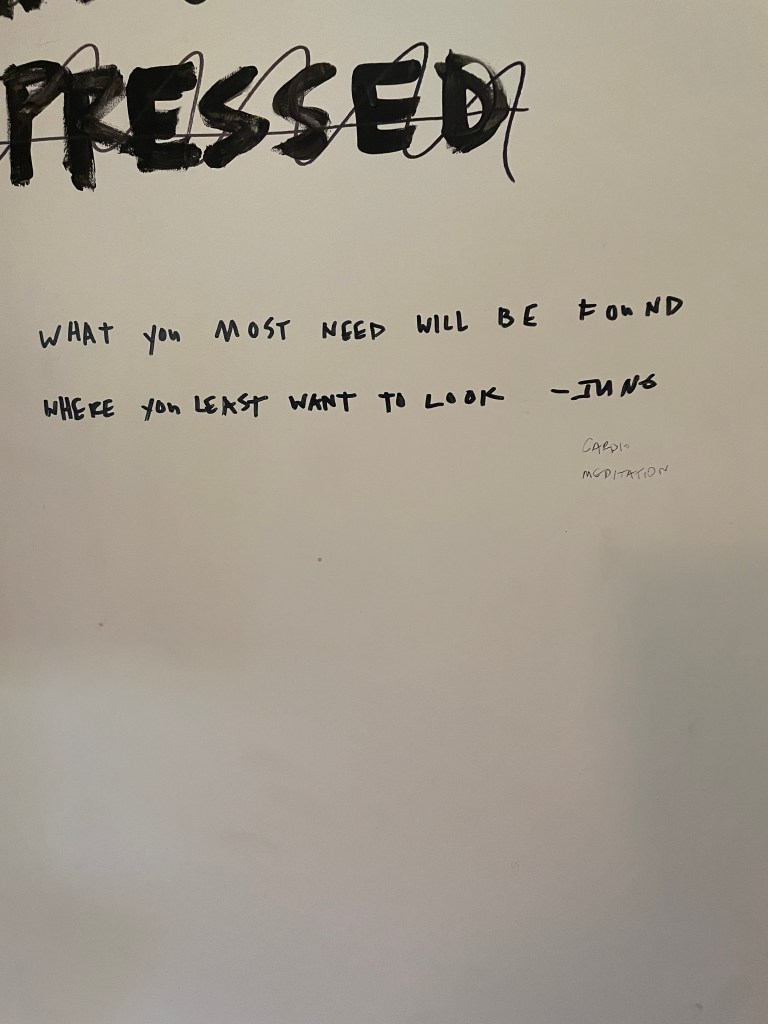 PRESSED
WHAT you MOST NEED WILL BE FOuND
WHERE you LEAST WANT TO LOOK -JUNG
CARDIO
MEDITATION